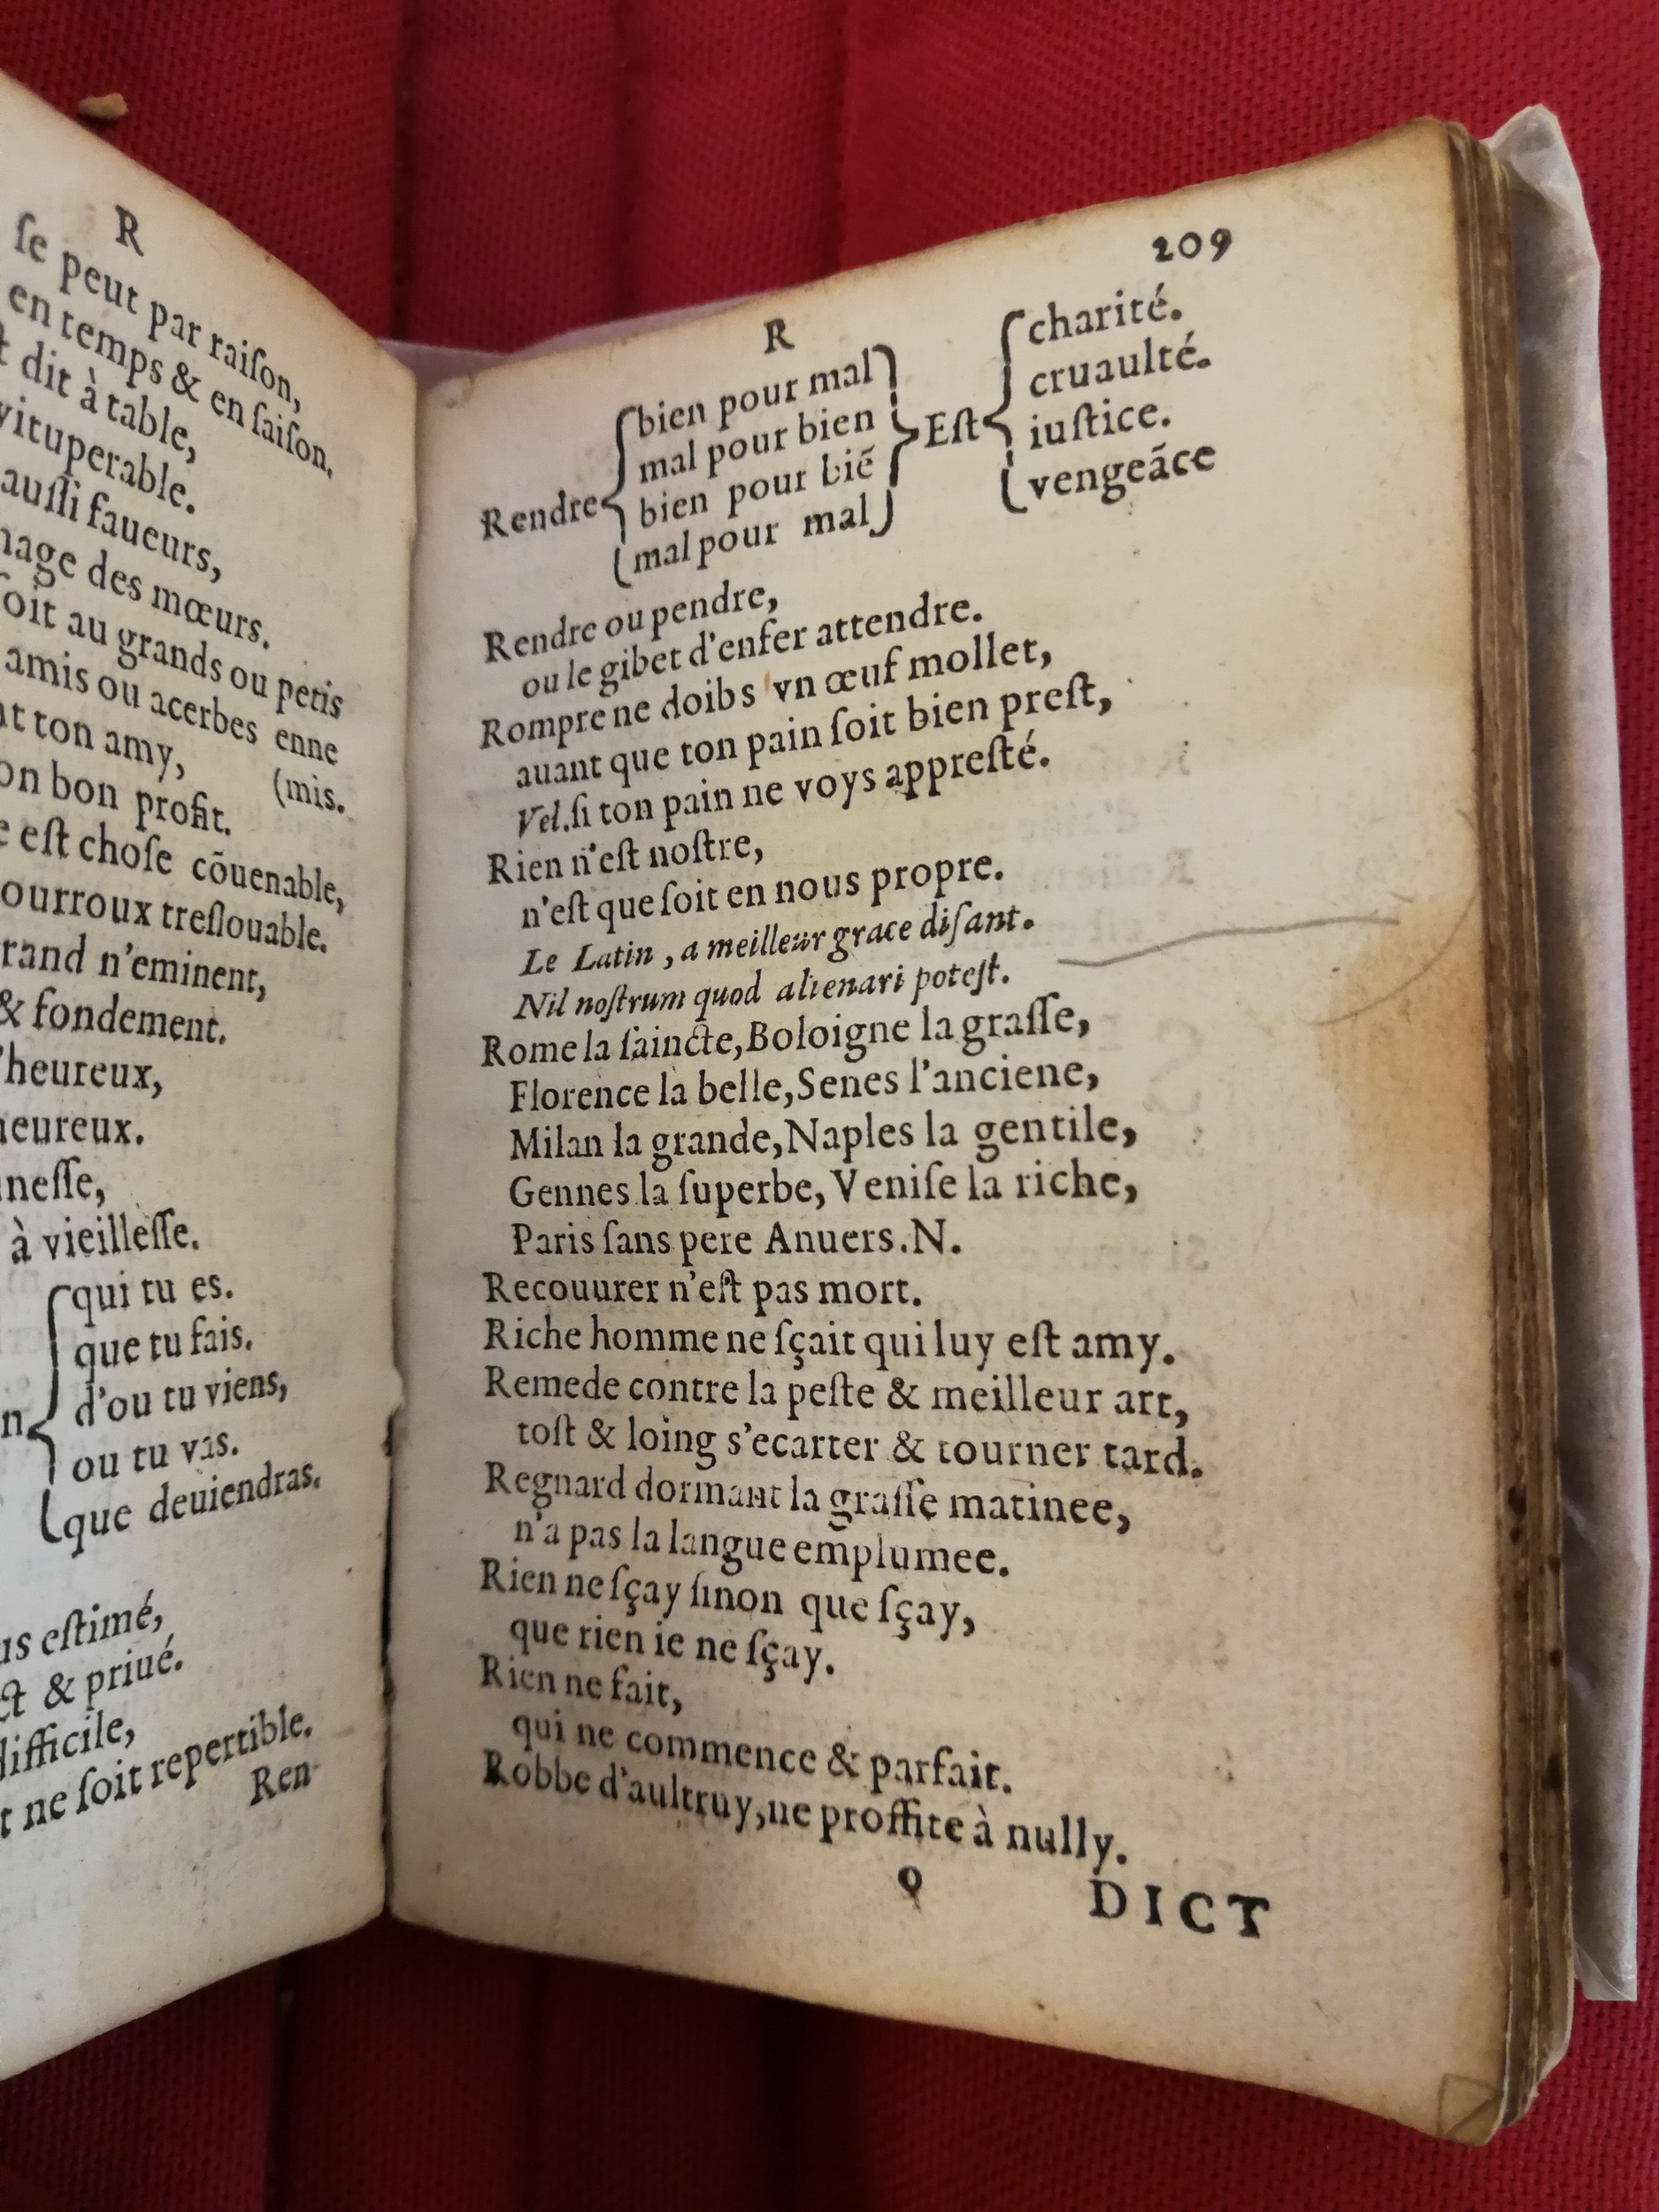 R
ſe peut par raiſon,
en temps & en ſaiſon.
dit à table,
vituperable.
auſſi faueurs,
des mœurs.
ſoit au grands ou petis
amis ou acerbes enne
(mis.
ton amy,
bon profit.
eſt choſe cōuenable,
courroux treſlouable.
n'eminent,
& fondement.
heureux,
à vieilleſſe.
qui tu es.
que tu fais.
d'ou tu viens,
ou tu vas.
que deuiendras.
eſtimé,
& priué.
difficile,
ne ſoit repertible.
Ren
209
R
Rendre
bien pour mal
mal pour bien
bien pour biē
mal pour mal
Eſt
charité.
cruaulté.
iuſtice.
vengeāce
Rendre ou pendre,
ou le gibet d'enfer attendre.
Rompre ne doibs vn œuf mollet,
auant que ton pain ſoit bien preſt,
Vel. ſi ton pain ne voys appreſté.
Rien n'eſt noſtre,
n'eſt que ſoit en nous propre.
Le Latin, a meilleur grace diſant.
Nil noſtrum quod alienari poteſt.
Rome la ſaincte, Boloigne la graſſe,
Florence la belle, Senes l'anciene,
Milan la grande, Naples la gentile,
Gennes la ſuperbe, Veniſe la riche,
Paris ſans pere Anuers. N.
Recouurer n'eſt pas mort.
Riche homme ne ſçait qui luy eſt amy.
Remede contre la peſte & meilleur art,
toſt & loing s'ecarter & tourner tard.
Regnard dormant la graſſe matinee,
n'a pas la langue emplumee.
Rien ne ſçay ſinon que ſçay,
que rien ie ne ſçay.
Rien ne fait,
qui ne commence & parfait.
Robbe d'aultruy, ne proffite à nully.
Q
DICT